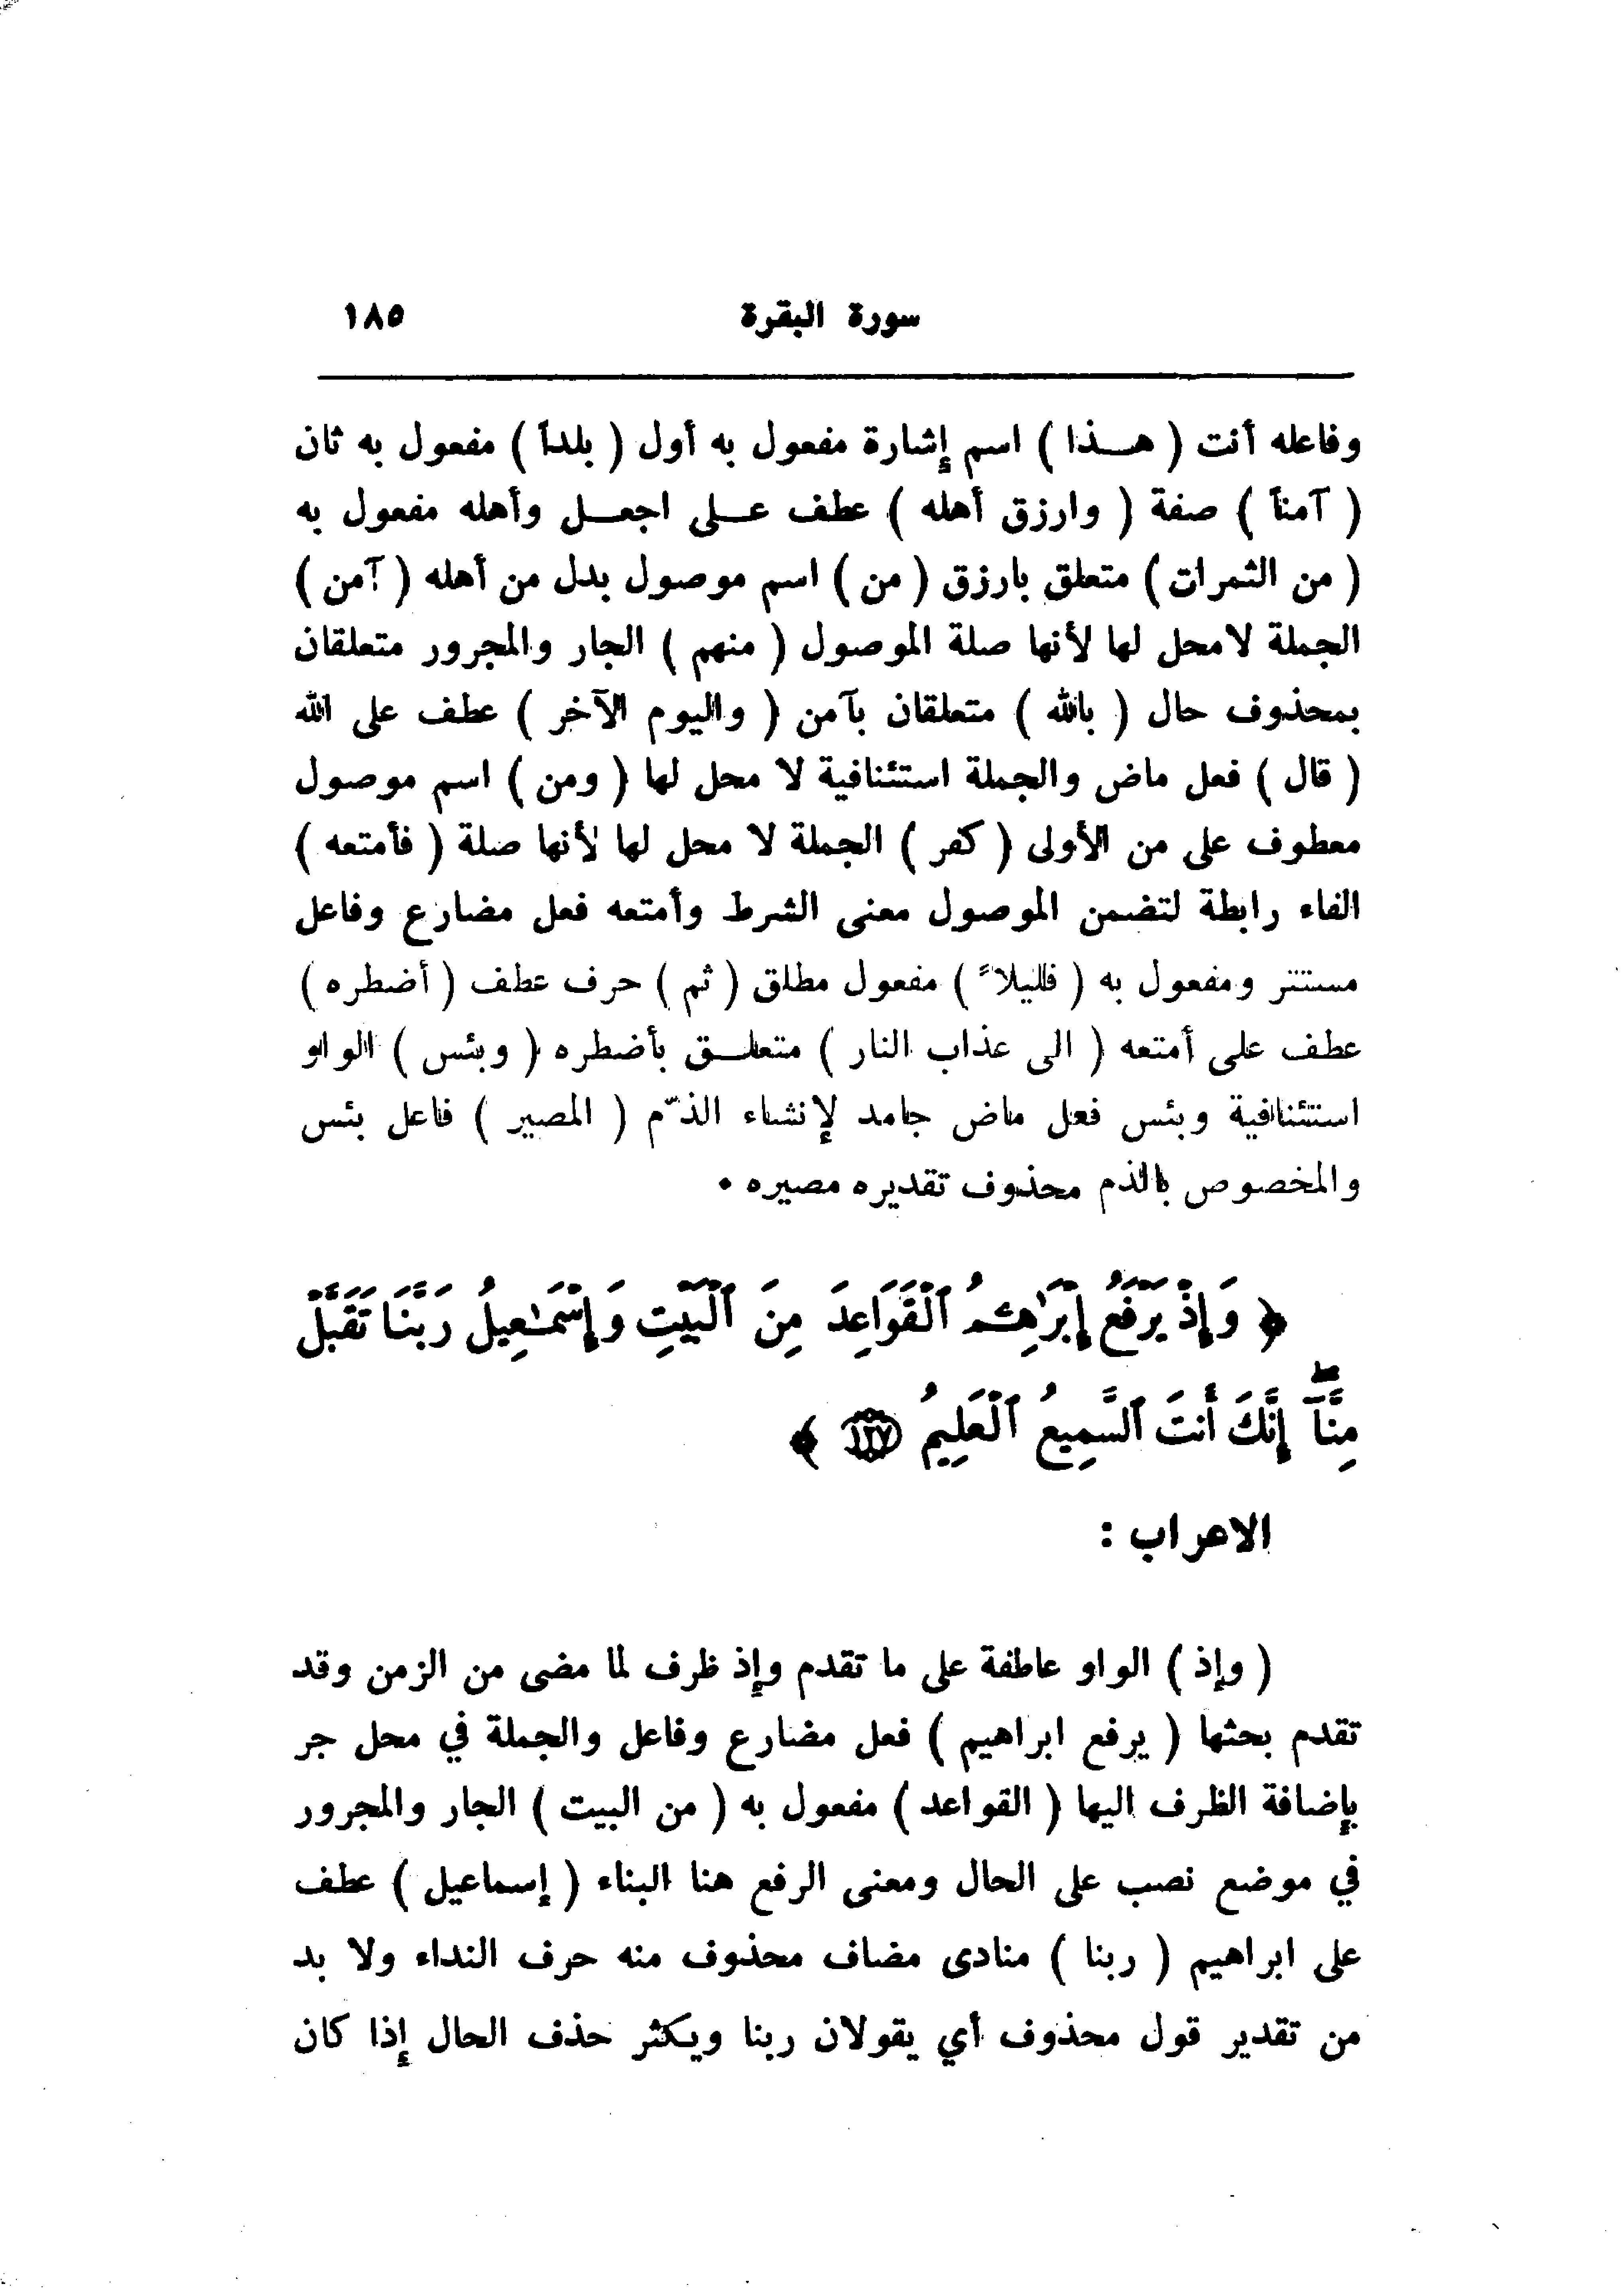 سورة البقرة ١٨٥
وفاعله أنت ( هـــذا ) اسم إشارة مفعول به أول ( بلداً ) مفعول به ثان
( آمناً ) صفة ( وارزق أهله ) عطف عـــلى اجعـــل وأهله مفعول به
( من الثمرات ) متعلق بارزق ( من ) اسم موصول بدل من أهله ( آمن )
الجملة لامحل لها لأنها صلة الموصول ( منهم ) الجار والمجرور متعلقان
بمحذوف حال ( بالله ) متعلقان بآمن ( واليوم الآخر ) عطف على الله
( قال ) فعل ماض والجملة استئنافية لا محل لها ( ومن ) اسم موصول
معطوف على من الأولى ( كفر ) الجملة لا محل لها لأنها صلة ( فأمتعه )
الفاء رابطة لتضمن الموصول معنى الشرط وأمتعه فعل مضارع وفاعل
مستتر ومفعول به ( قليلاً ) مفعول مطلق ( ثم ) حرف عطف ( أضطره )
عطف على أمتعه ( الى عذاب النار ) متعلـــق بأضطره ( وبئس ) الواو
استئنافية وبئس فعل ماض جامد لإنشاء الذّم ( المصير ) فاعل بئس
والمخصوص بالذم محذوف تقديره مصيره .
﴿ وَإِذْ يَرْفَعُ إِبْرَٰهِـۧمُ ٱلْقَوَاعِدَ مِنَ ٱلْبَيْتِ وَإِسْمَـٰعِيلُ رَبَّنَا تَقَبَّلْ
مِنَّآ ۖ إِنَّكَ أَنتَ ٱلسَّمِيعُ ٱلْعَلِيمُ ١٢٧ ﴾
الاعراب :
( وإذ ) الواو عاطفة على ما تقدم وإذ ظرف لما مضى من الزمن وقد
تقدم بحثها ( يرفع ابراهيم ) فعل مضارع وفاعل والجملة في محل جر
بإضافة الظرف اليها ( القواعد ) مفعول به ( من البيت ) الجار والمجرور
في موضع نصب على الحال ومعنى الرفع هنا البناء ( إسماعيل ) عطف
على ابراهيم ( ربنا ) منادى مضاف محذوف منه حرف النداء ولا بد
من تقدير قول محذوف أي يقولان ربنا ويكثر حذف الحال إذا كان